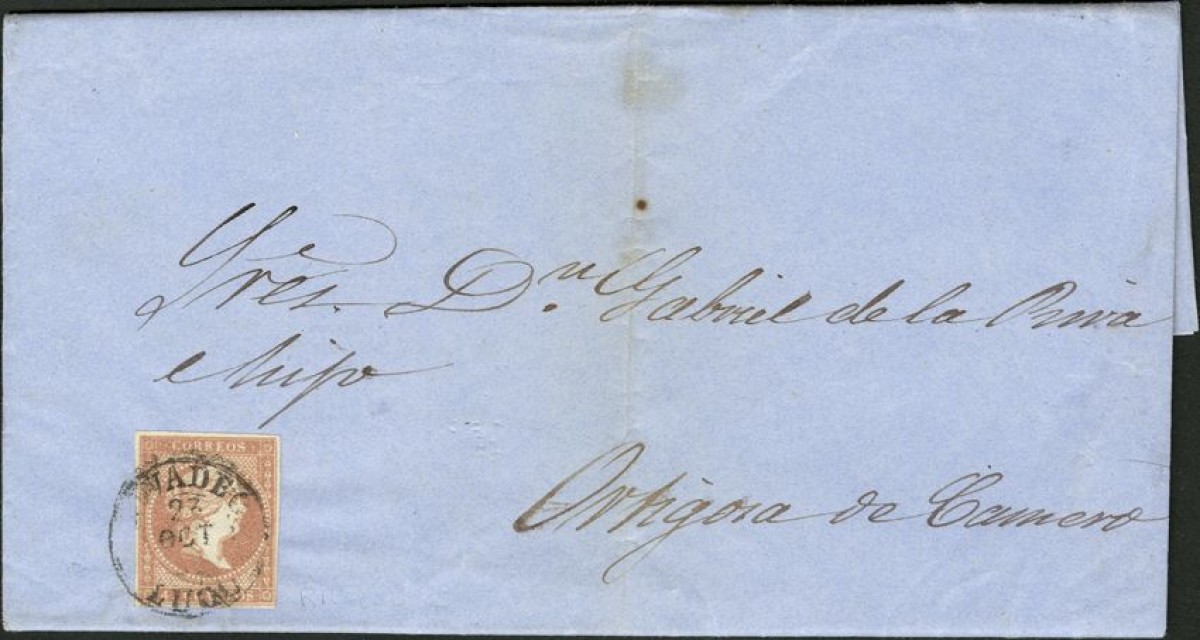 Sres. Dn. Gabriel de la Riva
e hijo
Ortigosa de Camero
CORREOS
OCT
LUGO